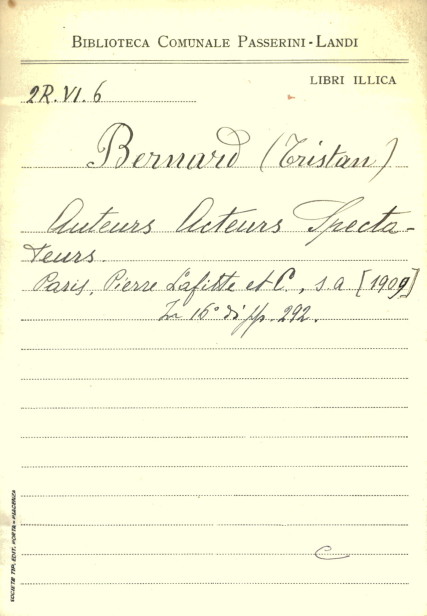 BIBLIOTECA COMUNALE PASSERINI-LANDI
LIBRI ILLICA
2R.VI.6
Bernard (Tristan)
Auteurs Acteurs Specta-
teurs.
Paris, Pierre Lafitte et C., s.a [1909]
In 16° di pp. 292.
C
SOCIETÀ TIP. EDIT. PORTA - PIACENZA